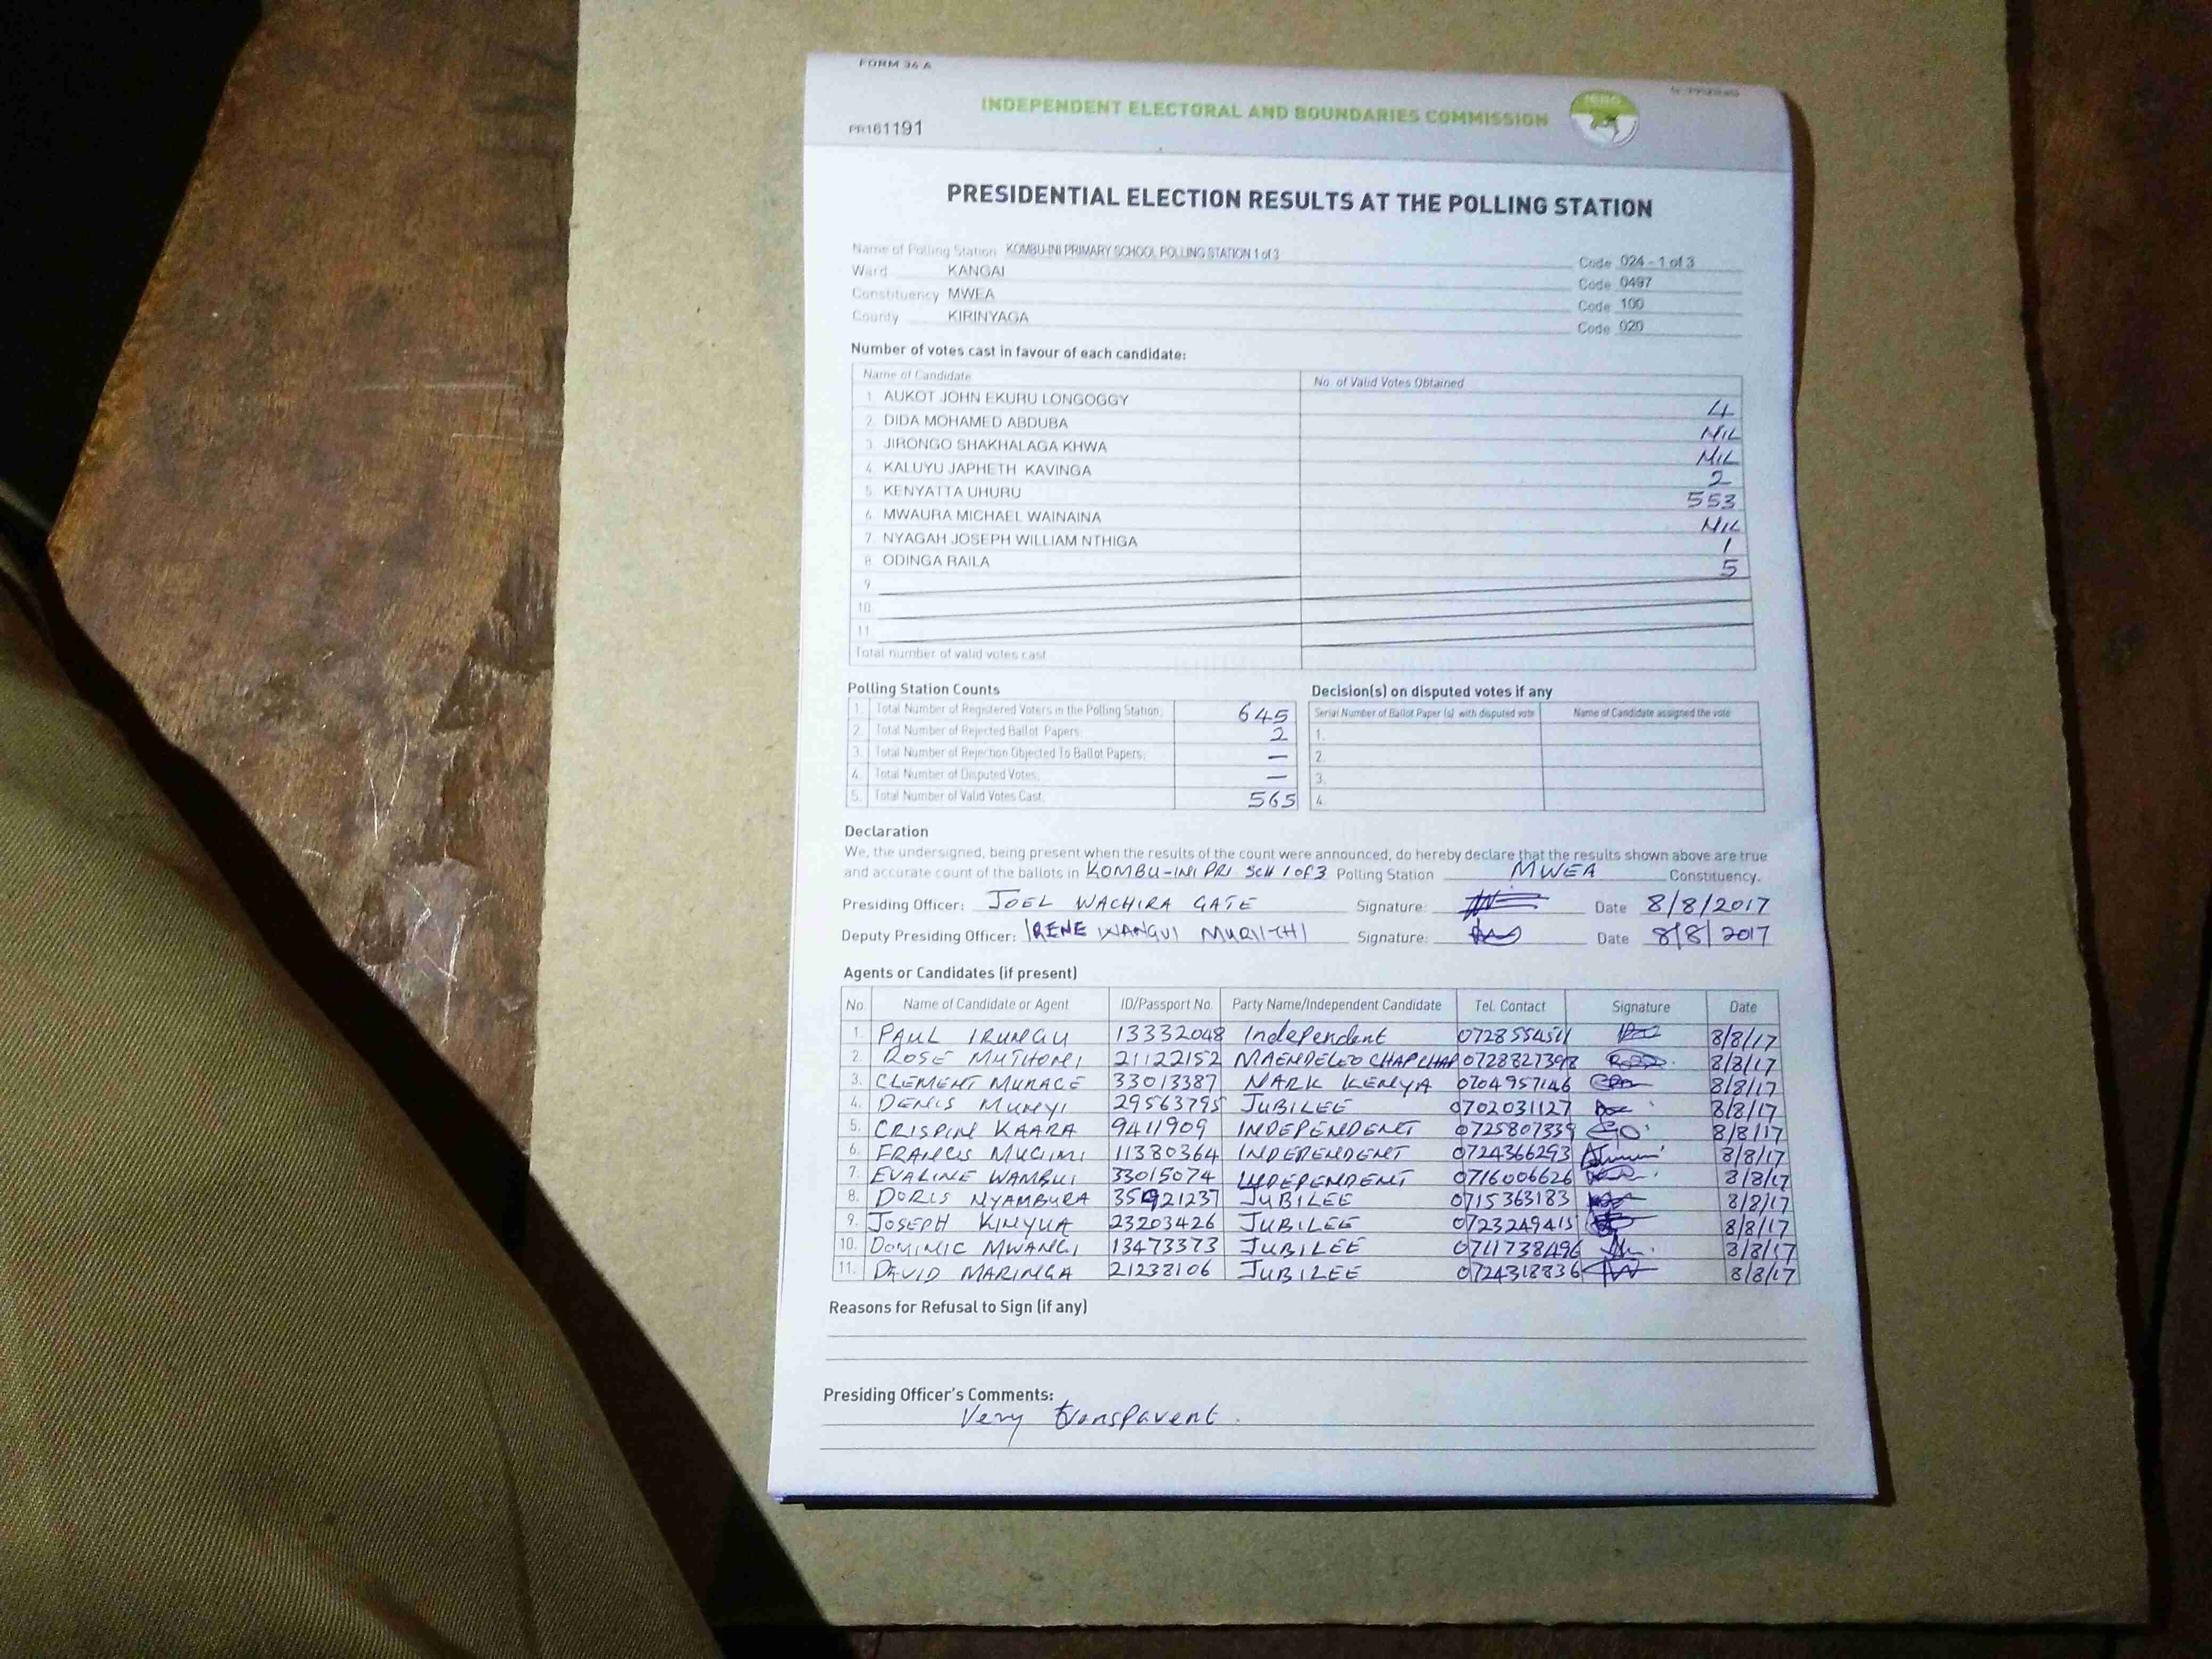 FORM 34 A
INDEPENDENT ELECTORAL AND BOUNDARIES COMMISSION
PR161191
PRESIDENTIAL ELECTION RESULTS AT THE POLLING STATION
Name of Polling Station KOMBU-INI PRIMARY SCHOOL POLLING STATION 1 of 3 Code 024 - 1 of 3
Ward KANGAI Code 0497
Constituency MWEA Code 100
County KIRINYAGA Code 020
Number of votes cast in favour of each candidate:
Name of Candidate No. of Valid Votes Obtained
1. AUKOT JOHN EKURU LONGOGGY 4
2. DIDA MOHAMED ABDUBA NIL
3. JIRONGO SHAKHALAGA KHWA NIL
4. KALUYU JAPHETH KAVINGA 2
5. KENYATTA UHURU 553
6. MWAURA MICHAEL WAINAINA NIL
7. NYAGAH JOSEPH WILLIAM NTHIGA 1
8. ODINGA RAILA 5
9
10
11
Total number of valid votes cast
Polling Station Counts Decision(s) on disputed votes if any
1. Total Number of Registered Voters in the Polling Station; 645 Serial Number of Ballot Paper (s) with disputed vote Name of Candidate assigned the vote
2. Total Number of Rejected Ballot Papers; 2 1.
3. Total Number of Rejection Objected To Ballot Papers; — 2.
4. Total Number of Disputed Votes; — 3.
5. Total Number of Valid Votes Cast; 565 4.
Declaration
We, the undersigned, being present when the results of the count were announced, do hereby declare that the results shown above are true
and accurate count of the ballots in KOMBU-INI PRI SCH 1 of 3 Polling Station MWEA Constituency.
Presiding Officer: JOEL WACHIRA GATE Signature: Date 8/8/2017
Deputy Presiding Officer: IRENE WANGUI MURIITHI Signature: Date 8/8/2017
Agents or Candidates (if present)
No. Name of Candidate or Agent ID/Passport No. Party Name/Independent Candidate Tel. Contact Signature Date
1. PAUL IRUNGU 13332048 Independent 8/8/17
2. ROSE MUTHONI 21122152 MAENDELEO CHAP CHAP 8/8/17
3. CLEMENT MURAGE 33013387 NARK KENYA 0704957146 8/8/17
4. DENIS MUNYI 29563795 JUBILEE 0702031127 8/8/17
5. CRISPIN KAARA 9411909 INDEPENDENT 0725807339 8/8/17
6. FRANCIS MUGIMI 11380364 INDEPENDENT 0724366293 8/8/17
7. EVALINE WAMBUI 33015074 INDEPENDENT 0716006626 8/8/17
8. DORIS NYAMBURA JUBILEE 0715363183 8/8/17
9. JOSEPH KINYUA 23203426 JUBILEE 0723249415 8/8/17
10. DOMINIC MWANGI 13473373 JUBILEE 0711738496 8/8/17
11. DAVID MARINGA 21238106 JUBILEE 0724318836 8/8/17
Reasons for Refusal to Sign (if any)
Presiding Officer's Comments:
Very transparent.